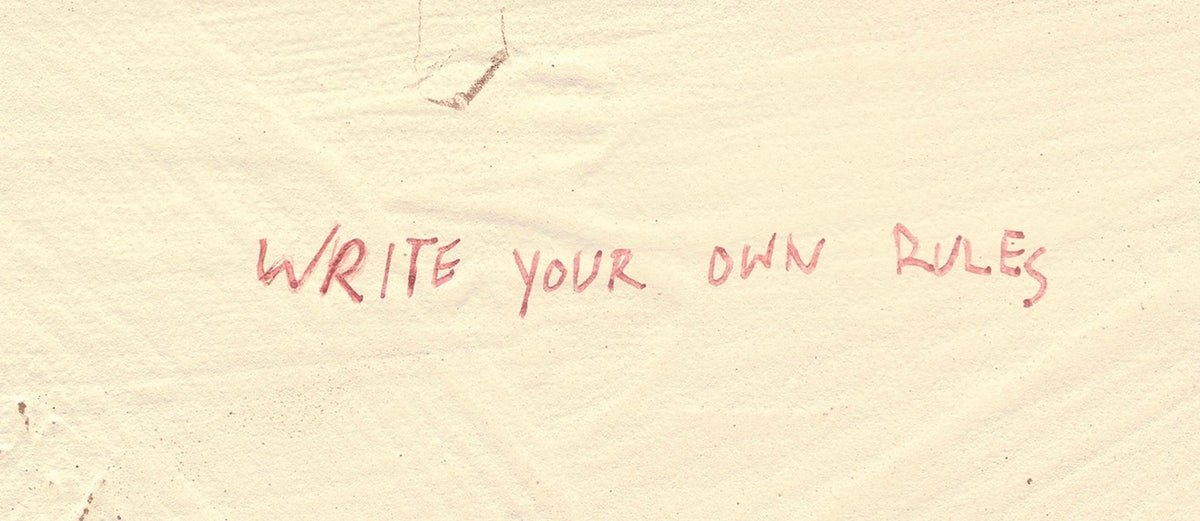 WRITE YOUR OWN RULES